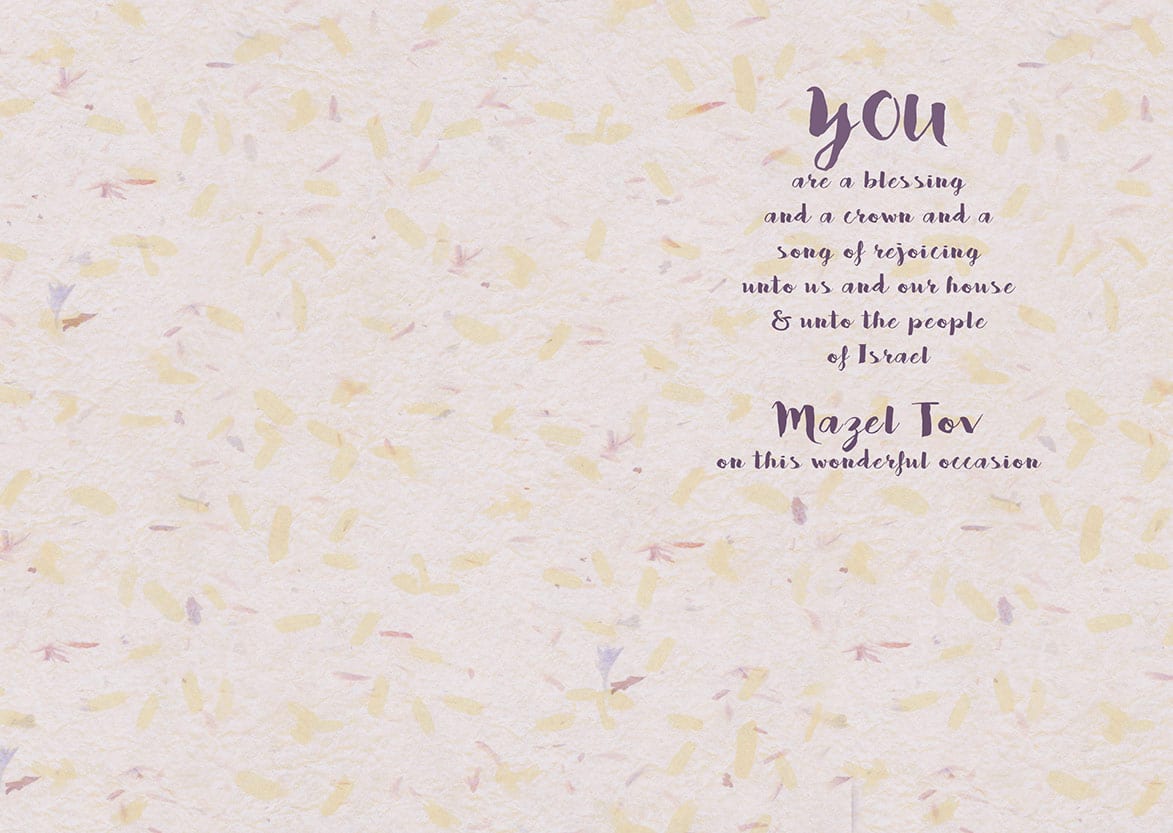 YOU
are a blessing
and a crown and a
song of rejoicing
unto us and our house
& unto the people
of Israel
Mazel Tov
on this wonderful occasion